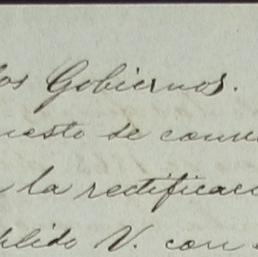 los Gobiernos.
uesto se conv
la rectificac
plido V. con